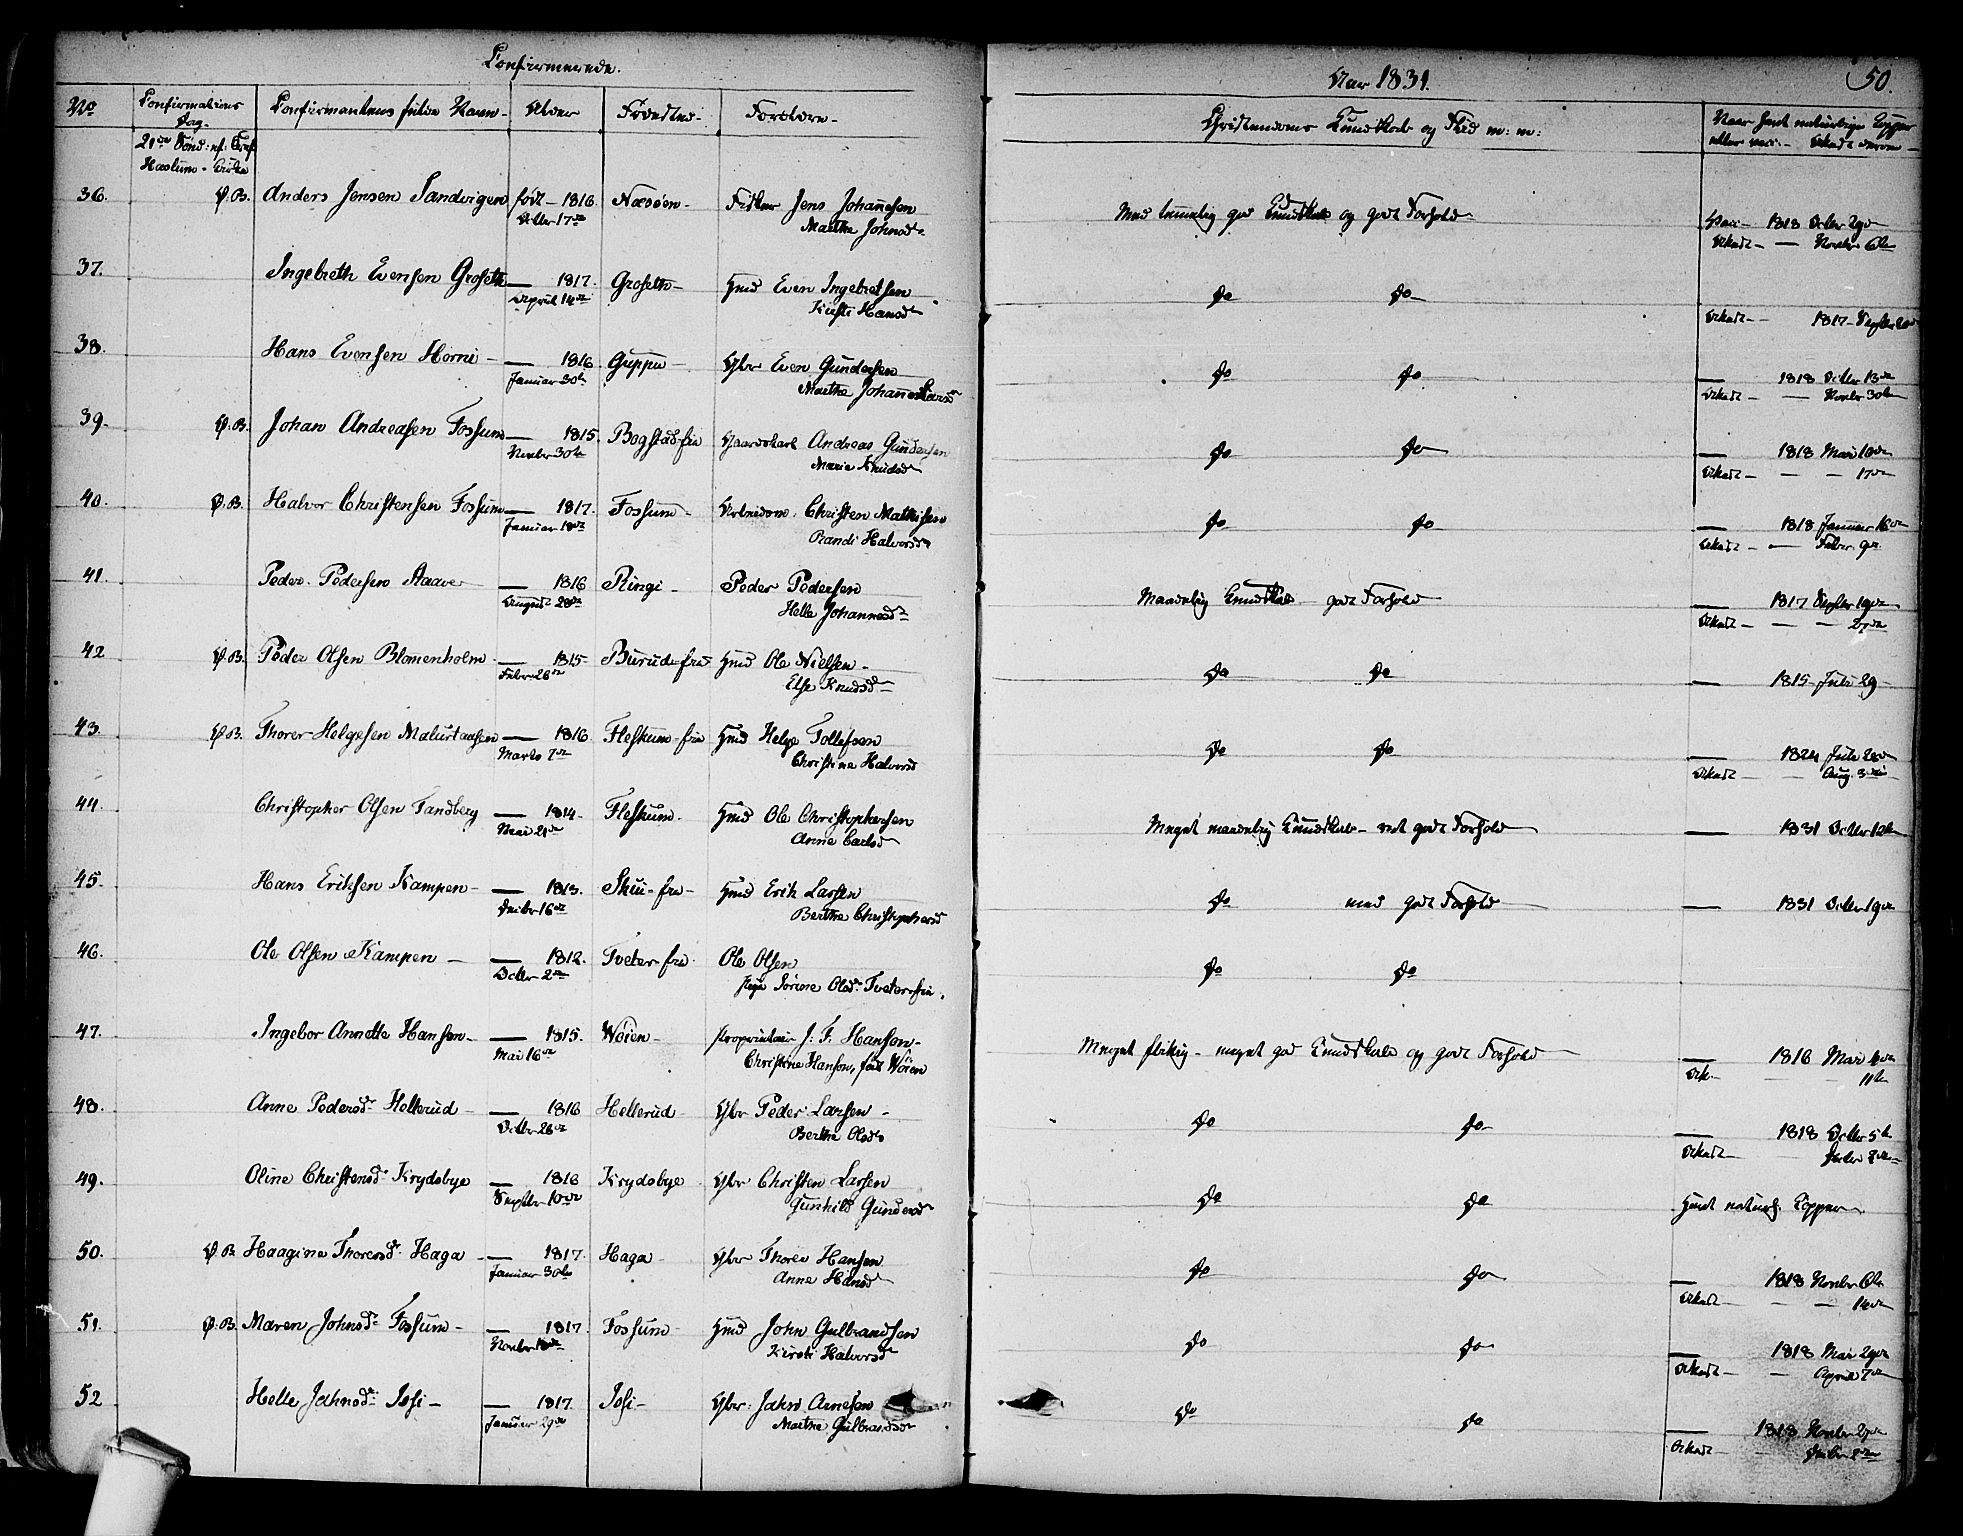 Confirmerede.
No
Confirmations Dag.
Confirmantens fulde Navn.
Alder
Fødested.
Forældre.
Haslum Kirke
36. V.B. Anders Jensen Sandvigen født 1816 Næsøen Jens Johannesen
Octbr 17de Marthe Johnsd.
37. Ingebreth Evensen Groseth — 1817. Groseth Gmd Even Ingebretsen
April 14de Kirsti Hansd.
38. Hans Evensen Horni — 1816 Guppu Even Gundersen
Januar 30te Marthe
39. V.B. Johan Andreasen Fossum — 1815. Bogstad fra Gaardskarl Andreas Gundersen
Novbr 30te Marie Knudsd.
40. V.B. Halvor Christensen Fossum — 1817. Fossum Christen Mathisen
Januar 18de Randi Halvorsd.
41. Peder Pedersen — 1816 Ringi Peder Pedersen
August 28de Helle Johannesd.
42 V.B. Peder Olsen Blomenholm — 1815 Burud fra Gmd Ole Nielsen
Febr 26de Else Knudsd.
43. V.B. Thorer Helgesen — 1816 Fleskum fra Gmd Helge Tollefsen
Marts 7de Christine Halvorsd
44. Christopher Olsen Tandberg — 1814 Fleskum Gmd Ole Christophersen
Mai 21de Anne Carlsd
45. Hans Eriksen Kampen — 1813. Skui fra Gmd Erik Larsen
Decbr 16de Berthe Christophersd
46. Ole Olsen Kampen — 1812. Tveter fra Ole Olsen
Octbr 2den Pige Sørine Olsd. Tveter fra
47. Ingebor Annette Hansen — 1815. Wøien Proprietair J. F. Hanson
Mai 16de Christine Hanson, født Wøien
48. Anne Pedersd. Hellerud — 1816 Hellerud Gbr Peder Larsen
Octbr 26de Berthe Olsd.
49. Oline Christensd. Krydsbye — 1816 Krydsbye Gbr Christen Larsen
Septbr 10de Gunhild Gundersd
50. V.B. Haagine Thoresd. Haga — 1817. Haga Gbr Thorer Hansen
Januar 30te Anne Hansd
51. V.B. Maren Johnsd. Fossum — 1817. Fossum Gmd John Gulbrandsen
Novbr Kirsti Halvorsd
52 Helle Jahnsd. Isi — 1817. Isi Gbr. Jahn Arnesen
Januar 29de Marthe Gulbrandsd
Aar 1831.
50.
Christendoms Kundskab og Flid m: m:
Naar havt naturlige Kopper
eller vac: Attest derom
Med temmelig god Kundskab og godt Forhold
Vac: 1818 Octbr 29de
Attest — Novbr 6te
Do Do
Attest 1817
Do Do
— 1818 Octbr 13de
Attest — Novbr 30te
Do Do
— 1818 Mai 10de
Attest — — 17de
Do Do
— 1818 Januar 16de
Attest — Febr. 9de
Maadelig Kundskab godt Forhold
— 1817 Septbr 19de
Attest — — 27de
Do Do
— 1815 Juli 29
Do Do
— 1824 Juli 28de
Attest — Aug. 3die
Meget maadelig Kundskab — ret godt Forhold
— 1831 Octbr 12te
Do med godt Forhold
— 1831 Octbr 19de
Do Do
Meget flittig — meget god Kundskab og godt Forhold
— 1816 Mai 4de
Att. — — 11te
Do Do
— 1818 Octbr 5te
Attest
Do Do
Havt naturl. Kopper
Do Do
— 1818 Novbr 6te
Attest — — 14de
Do Do
— 1818 Mai 29de
Attest — April 7de
Do Do
1818 Novbr 27de
Attest — Decbr 2den